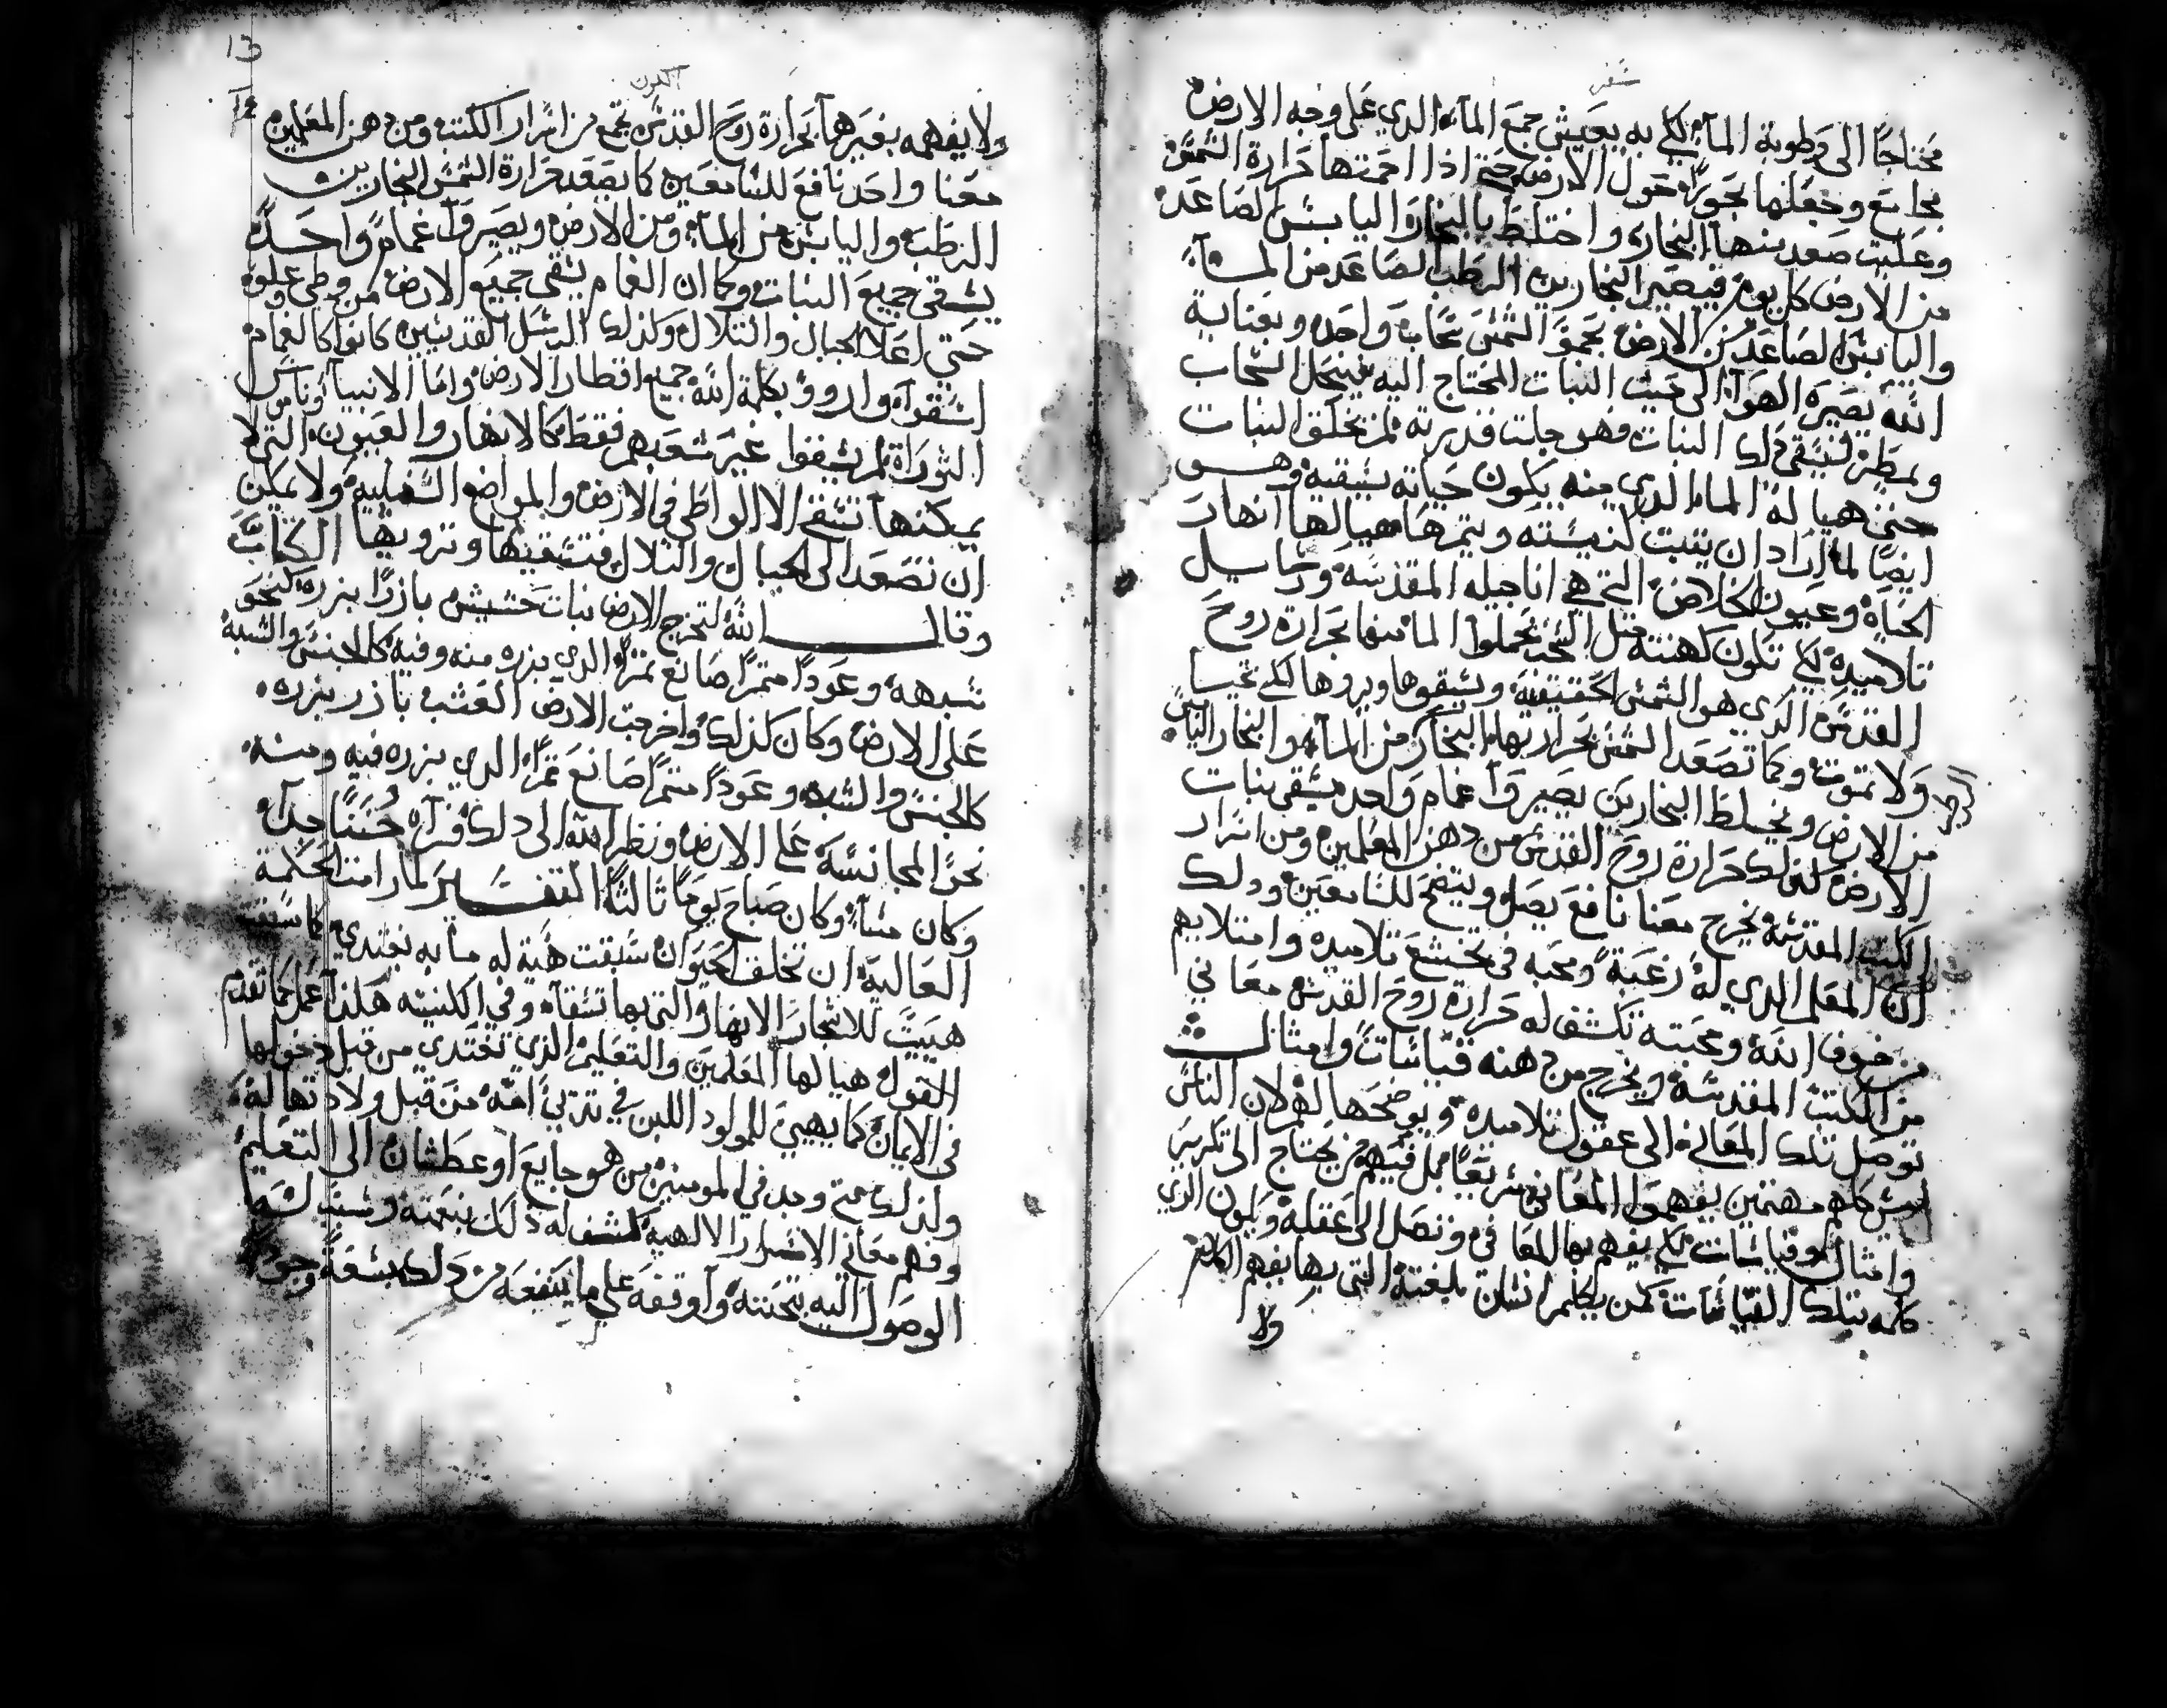 سفر
محتاجًا الى رطوبة المآء لكي به يعيش جمع المآء الدي على وجه الارض
مجامع وجعلها بحورًا حول الارض حتى اذا احمتها حرارة الشمس
وعليت صعد منها البخار واختلط بالبخار اليابس الصاعد
من الارض كل يوم فيصير البخارين الرطب الصاعد من المآء
واليابس الصاعد من الارض بحمو الشمس سحاب واحد وبعناية
الله تصيره الهوآء الى حيث النبات المحتاج اليه فينحل السحاب
ويمطر فيسقي دلك النبات فهو جلت قدرته لم يخلق النبات
حتى هيا له المآء الدي منه يكون حياته يسقيه وهو
ايضًا لما اراد ان يتبت كنيسته ويتمرها هيا لها انهار
الحياة وعيون الخلاص التي هي اناجيله المقدسة ورسايل
تلاميده لكي تكون كهنته متل السحب يحملوا المآ منها بحرارة روح
القدس الدي هو الشمس الحقيقية ويسقوها ويروها لكي تحيا
ولا تموت وكما تصعد الشمس بحرارتها البخار من المآء والبخار اليابس
من الارض ويختلط البخارين يصيروآ غمام واحد يسقي نبات
الارض كدلك حرارة روح القدس من دهن المعلمين ومن اسرار
الكتب المقدسة يخرج معنا نافع يصل ويتضح للسامعين ودلك
ان المعلم الدي له رغبة ومحبه في تخشع تلاميده وامتلايهم
من خوف الله ومحبته تكشف له حرارة روح القدس معاني
من الكتب المقدسة ويخرج من دهنه قياسات وامتال
توصل تلك المعاني الى عقول تلاميده ويوضحها لهم لان الناس
ليس كلهم مهتمين يفهموا المعاني سريعًا بل فيهم من يحتاج الى تكرير
وامتال وقياسات لكي يفهم بها المعاني وتصل الى عقله ويكون الدي
كلمه بتلك القياسات كمن يكلم انسان بلغته التي بها يفهم الكلام
ولا
13
التكوين
ولا يفهمه بغيرها بحرارة روح القدس تجمع من اسرار الكتب ومن دهن المعلمين
معنا واحد نافع للسامعين كما تصعد حرارة الشمس البخارين
الرطب واليابس من المآء ومن الارض ويصيروآ غمام واحد
يسقي جميع النبات وكما ان الغمام يسقي جميع الارض من وطى علوه
حتى اعلا الجبال والتلال وكدلك الرسل القديسين كانوا كالغمام
اسقوا وارووا بكلمة الله جميع اقطار الارض واما الانبيا وناس
التوراة لم يسقوا غير شعبهم فقط كالانهار والعيون التي لا
يمكنها تسقي الا الواطي في الارض والمواضع السفلية ولا يمكن
ان تصعد الى الجبال والتلال فتسقيها وترويها الكتاب
وقال الله لتخرج الارض نبات حشيش باذرًا بزره لنحو
شبهه وعودًا متمرًا صانع تمرًا الدي بزره منه وفيه كالجنس والشبه
على الارض وكان كدلك واخرجت الارض العشب باذر بزره
كالجنس والشبه وعودًا متمرًا صانع تمرًا الدي بزره فيه ومنه
نحو المجانسة على الارض ونظر الله الى دلك فرآه حسنًا جدآ
وكان مسآء وكان صباح يومًا تالتًا التفسير لما رامت الحكمة
العالية ان تخلق الحيوان سبقت هيت له ما به يغتدي كما سبقت
هييت للاشجار الانهار التي بها تسقا وفي الكنيسه هكدا عمل كما تقدم
القول هيا لها المعلمين والتعليم الدي تغتدي من قبل دخولها
في الايمان كما يهيئ للمولود اللبن في تدي امه من قبل ولادتها له
ولدلك متى وجد في المومنين من هو جايع او عطشان الى التعليم
وفهم معاني الاسرار الالهيه كشف له دلك بنعمته وسبب له
الوصول اليه بتحننه وآوقفه على ما ينفعه من دلك بسعة